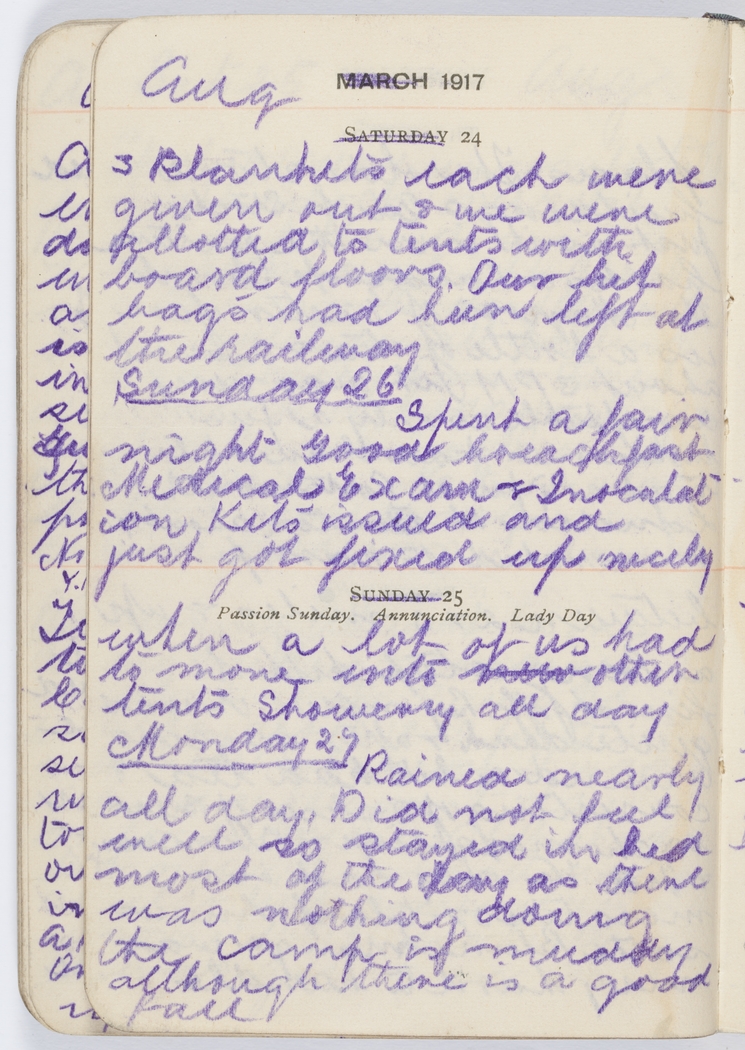 Aug MARCH 1917
SATURDAY 24
3 Blankets each were
given out & we were
allotted to tents with
board floors. Our kit
bags had been left at
the railway
Sunday 26
Spent a fair
night Good breackfast
Medical Exam & Inoculat
ion Kits issued and
just got fixed up nicely
SUNDAY 25
Passion Sunday. Annunciation. Lady Day
when a lot of us had
to move into new other
tents Showery all day
Monday 27
Rained nearly
all day. Did not feel
well so stayed in bed
most of the day as there
was nothing doing
the camp is muddy
although there is a good
fall